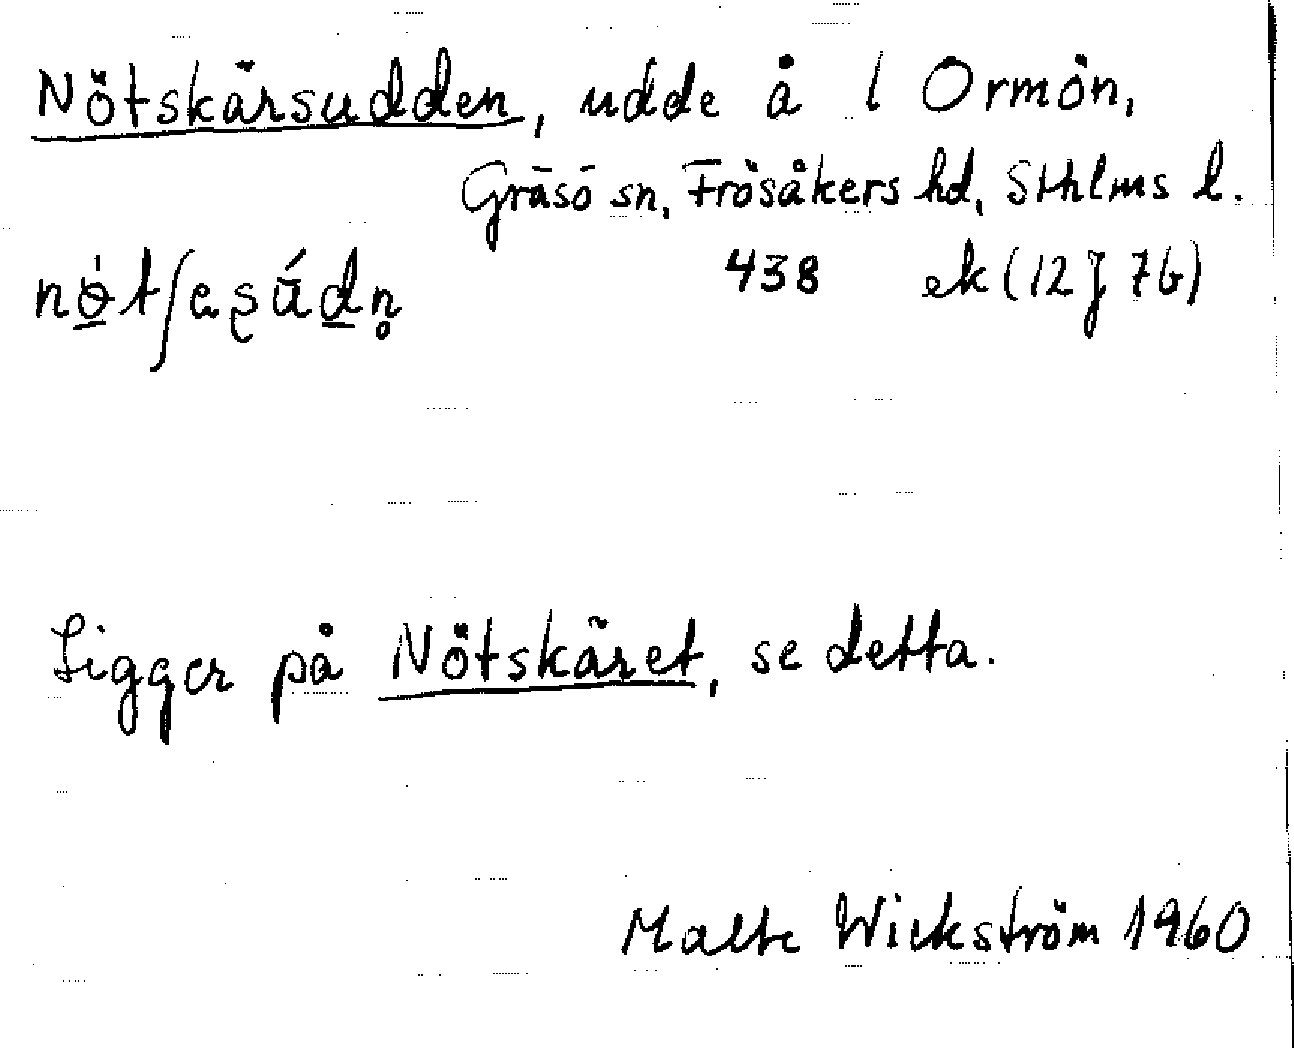 Nötskärsudden, udde å l Ormön,
Gräsö sn, Frösåkers hd, Sthlms l.
nǿ̱tʃeʂúd̲n̥ 438 ek (12 J 7b)
Ligger på Nötskäret, se detta.
Malte Wickström 1960